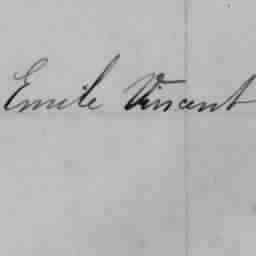 Emile Vincent